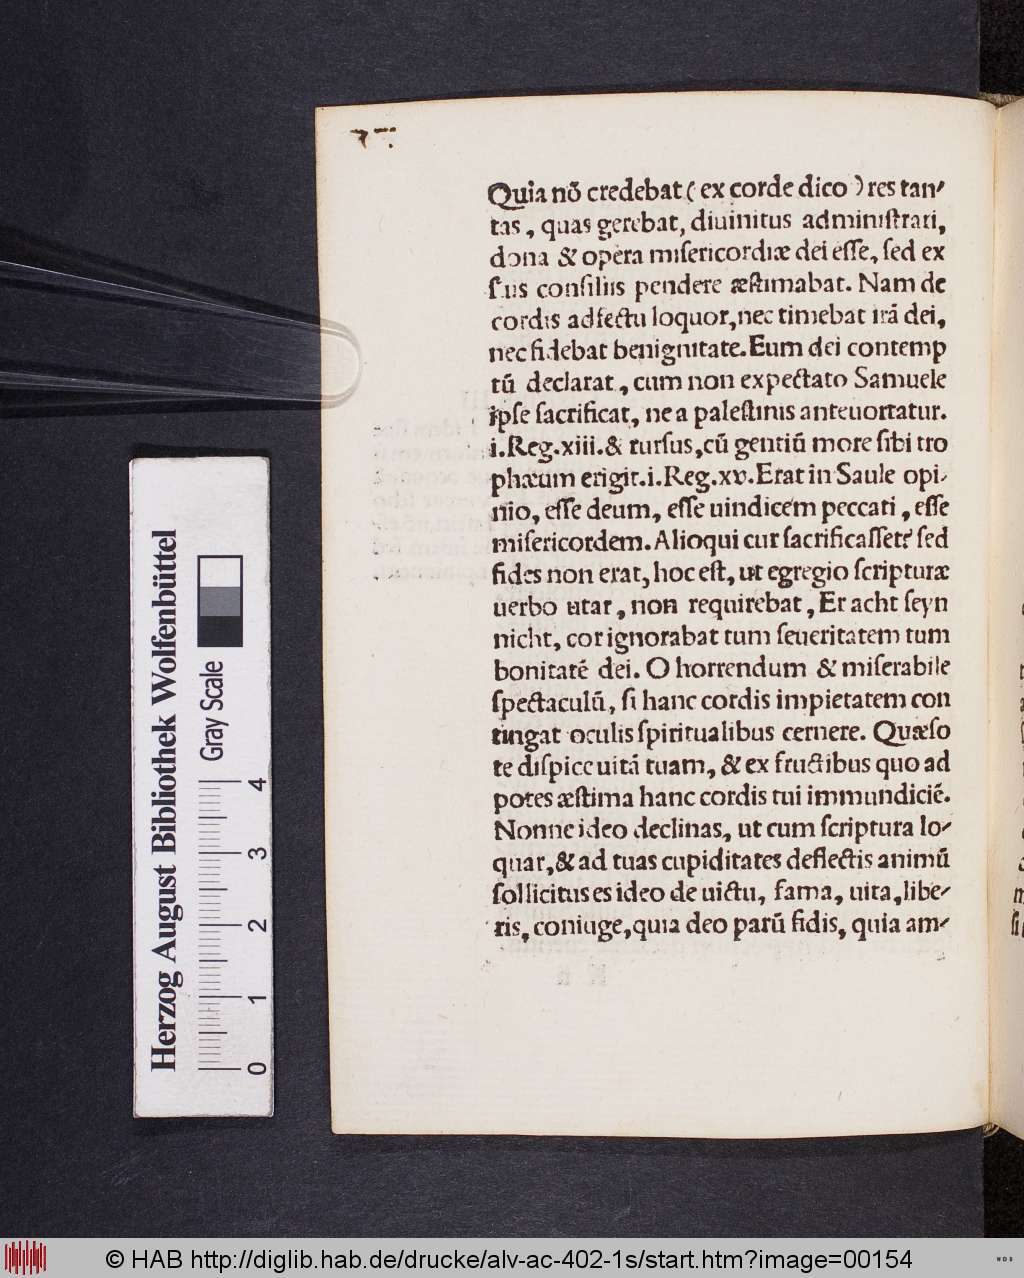 Quia nō credebat ( ex corde dico ) res tan-
tas, quas gerebat, diuinitus administrati,
dona & opera misericordiæ dei esse, sed ex
suis consiliis pendere æstimabat. Nam de
cordis adfectu loquor, nec timebat irā dei,
nec fidebat benignitate. Eum dei contemp
tū declarat, cum non expectato Samuele
ipse sacrificat, ne a palestinis anteuortatur.
i. Reg. xiii. & rursus, cū gentiū more sibi tro
phæum erigit. i. Reg. xv. Erat in Saule opi-
nio, esse deum, esse uindicem peccati, esse
misericordem. Alioqui cur sacrificasset? sed
fides non erat, hoc est, ut egregio scripturæ
uerbo utar, non requirebat, Er acht seyn
nicht, cor ignorabat tum seueritatem tum
bonitatē dei. O horrendum & miserabile
spectaculū, si hanc cordis impietatem con
tingat oculis spiritualibus cernere. Quæso
te dispice uitā tuam, & ex fructibus quo ad
potes æstima hanc cordis tui immundiciē.
Nonne ideo declinas, ut cum scriptura lo-
quar, & ad tuas cupiditates deflectis animū
sollicitus es ideo de uictu, fama, uita, libe-
ris, coniuge, quia deo parū fidis, quia am-
Herzog August Bibliothek Wolfenbüttel
Gray Scale
0 1 2 3 4
© HAB http://diglib.hab.de/drucke/alv-ac-402-1s/start.htm?image=00154